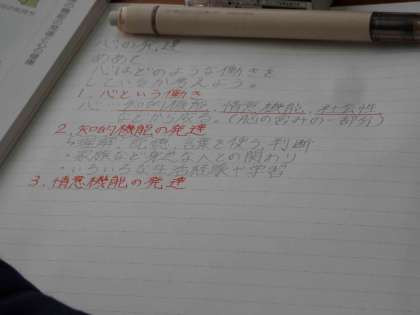 心の発達
めあて
心はどのような働きを
しているか考えよう。
1. 心という働き
心…知的機能、情意機能、社会性
などから成る。(脳の営みの一部分)
2. 知的機能の発達
↳理解、記憶、言葉を使う、判断
・家族など身近な人との関わり
・いろいろな生活経験や学習
3. 情意機能の発達